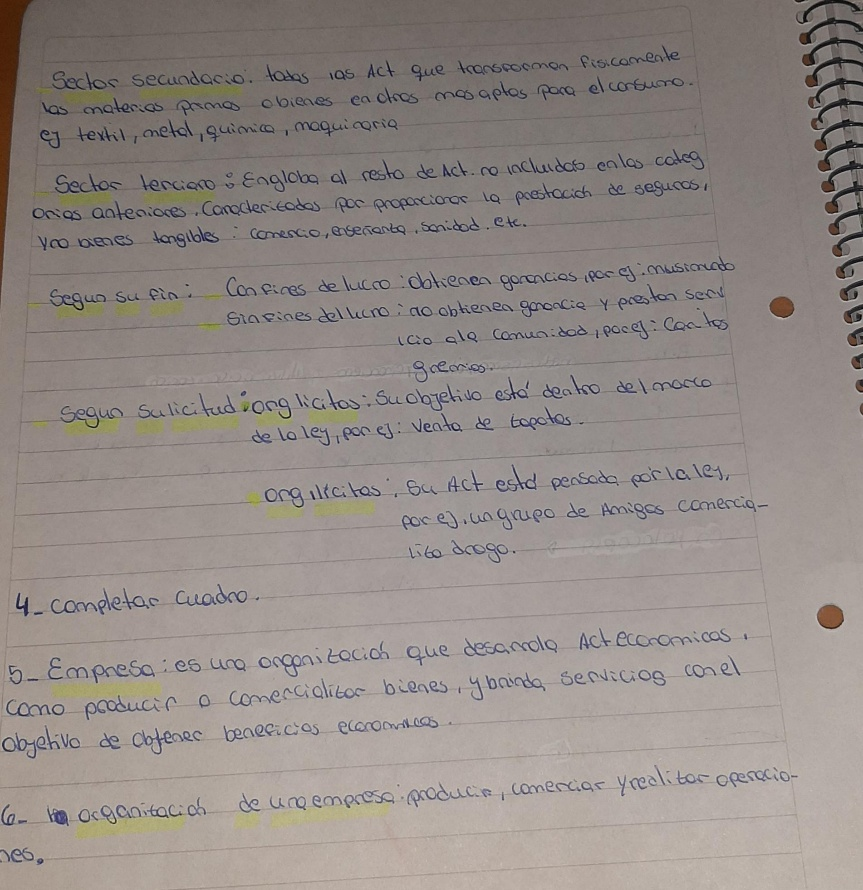 Sector secundario: todas las Act que transforman fisicamente
las materias primas o bienes en otros mas aptos para el consumo.
ej textil, metal, quimica, maquinaria
Sector terciario: Engloba al resto de Act. no incluidas en las categ
orias anteriores, Caracterizadas por proporcionar la prestación de seguros,
y no bienes tangibles: comercio, enseñanza, sanidad. etc.
Segun su fin: Con fines de lucro: Obtienen ganancias, por ej:
Sin fines del lucro: no obtienen ganancia y prestan serv
icio a la comunidad, por ej:
Segun su licitud: org licitas: Su objetivo está dentro del marco
de la ley, por ej: Venta de zapatos.
org. ilícitas: Su Act está pensada por la ley,
por ej, un grupo de Amigos comercia-
liza droga.
4- Completar Cuadro.
5- Empresa: es una organización que desarrola Act economicas,
como producir o comercializar bienes, y brinda servicios con el
objetivo de obtener beneficios economicos.
6- organización de una empresa: producir, comerciar y realizar operacio-
nes.